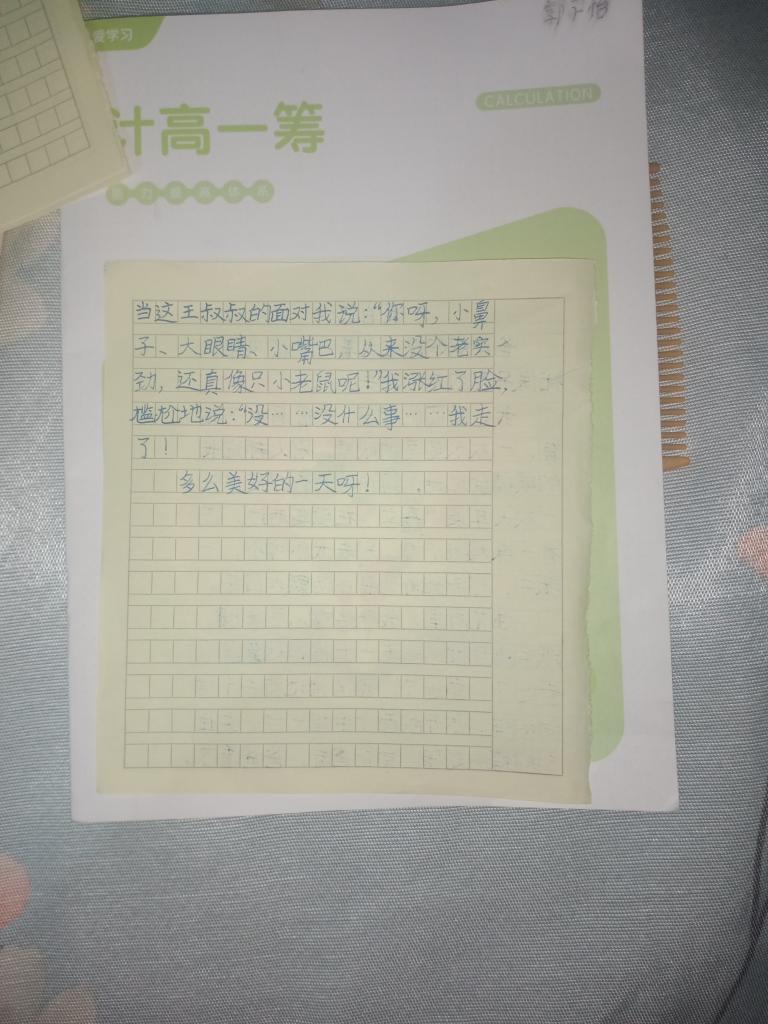 爱学习
计高一筹
CALCULATION
当这王叔叔的面对我说：“你呀，小鼻
子、大眼睛、小嘴巴，从来没个老实
劲，还真像只小老鼠呢！”我涨红了脸，
尴尬地说：“没……没什么事……我走
了！
多么美好的一天呀！